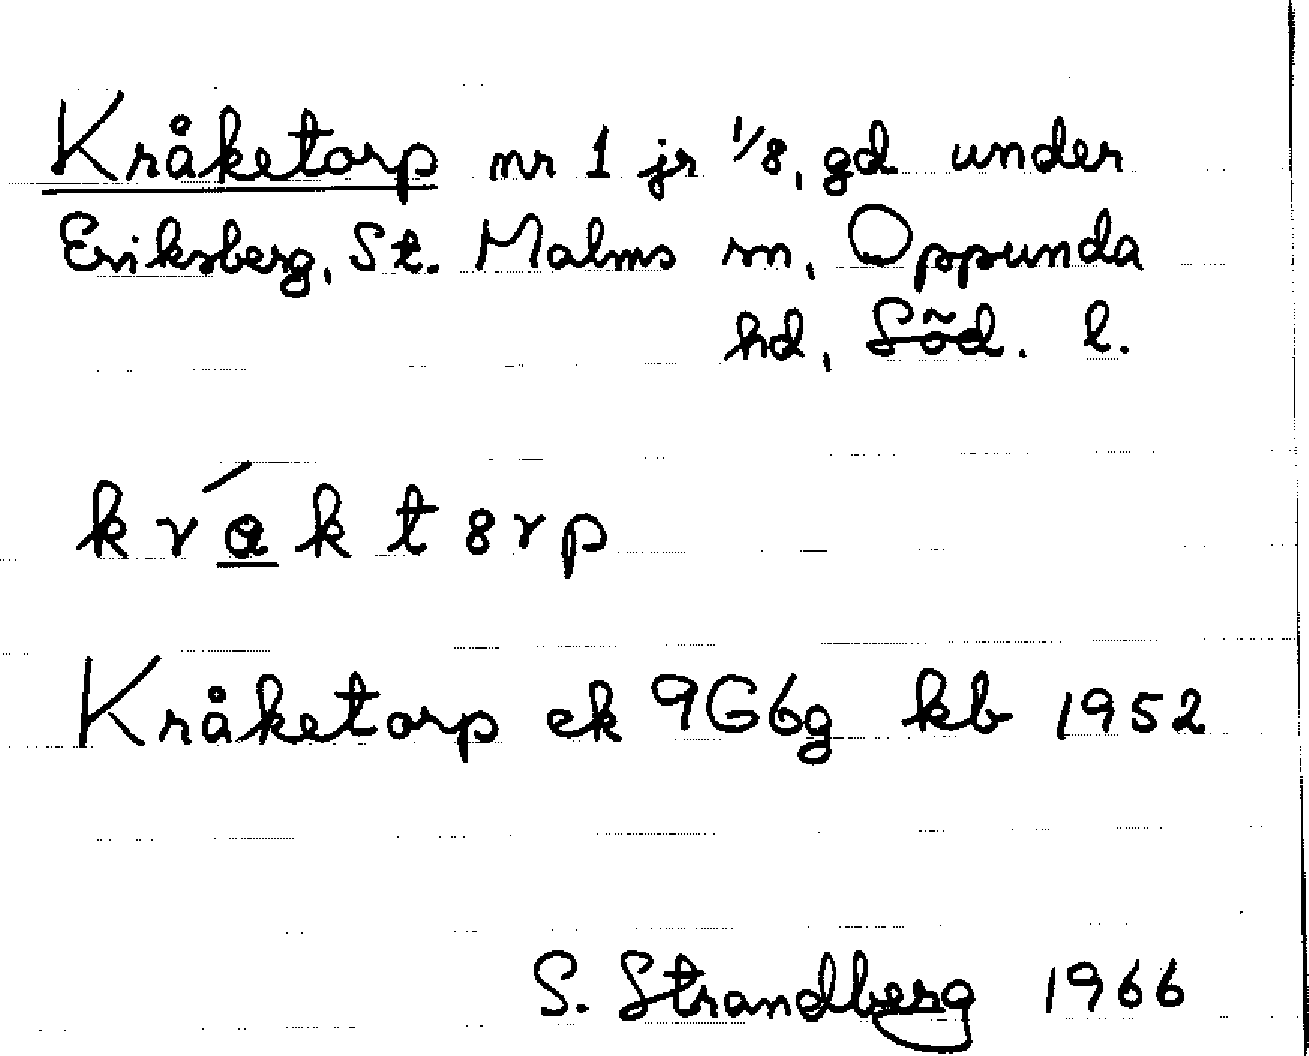 Kråketorp nr 1 jr 1/8, gd under
Eriksberg, St. Malms sn, Oppunda
hd, Söd. l.
kråkt8rp
Kråketorp ek 9G6g kb 1952
S. Strandberg 1966